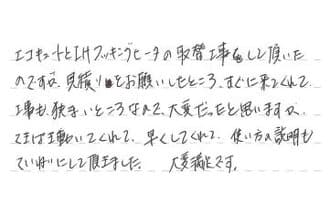 エコキュートとIHクッキングヒータの取替工事をして頂いた
のですが、見積りをお願いしたところ、すぐに来てくれて
工事も、狭いところなので、大変だったと思いますが、
てくれて、早くしてくれて、使い方の説明も
ていねいにして頂きました。 大変満足です。